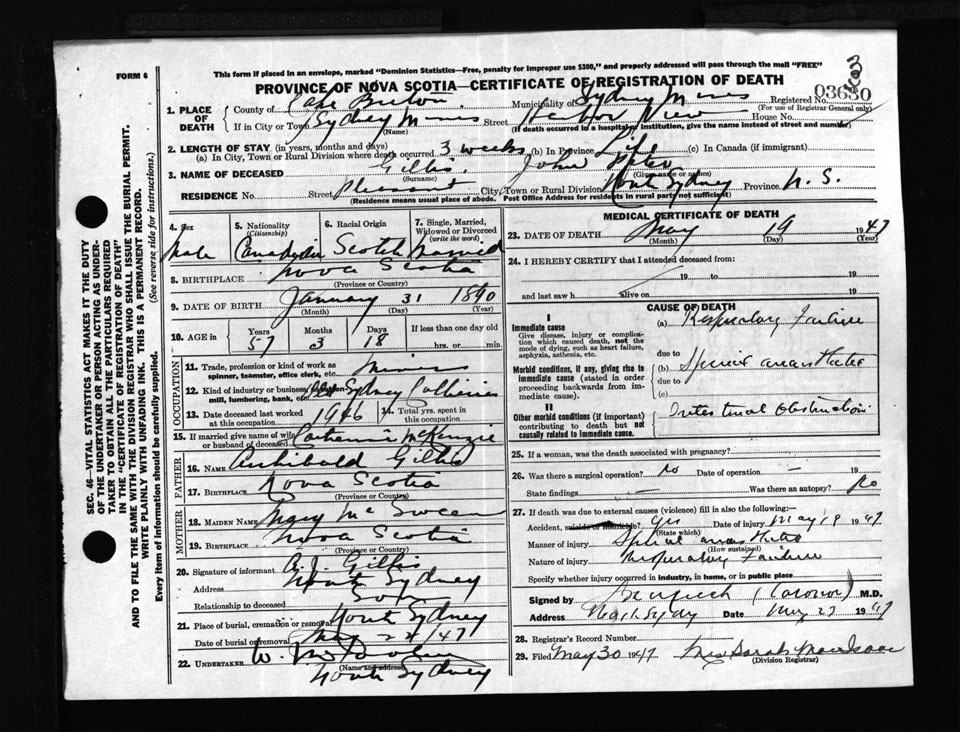 This form if placed in an envelope, marked "Dominion Statistics—Free, penalty for improper use $300," and properly addressed will pass through the mail "FREE"
FORM 6
PROVINCE OF NOVA SCOTIA—CERTIFICATE OF REGISTRATION OF DEATH
1. PLACE OF DEATH County of Cape Breton Municipality of Sydney Mines Registered No. (For use of Registrar General only)
If in City or Town Sydney Mines (Name) Street Harbor View House No.
(If death occurred in a hospital or institution, give the name instead of street and number)
2. LENGTH OF STAY (in years, months and days)
(a) In City, Town or Rural Division where death occurred 3 weeks (b) In Province Life (c) In Canada (if immigrant)
3. NAME OF DECEASED Gillis (Surname) John Peter (Given name or names)
RESIDENCE No. Street Pleasant City, Town or Rural Division North Sydney Province N. S.
(Residence means usual place of abode. Post Office Address for residents in rural parts not sufficient)
4. Sex Male
5. Nationality (Citizenship) Canadian
6. Racial Origin Scotch
7. Single, Married, Widowed or Divorced (write the word) Married
8. BIRTHPLACE Nova Scotia (Province or Country)
9. DATE OF BIRTH January 31 1890
(Month) (Day) (Year)
10. AGE in Years 57 Months 3 Days 18 If less than one day old hrs. or min.
OCCUPATION
11. Trade, profession or kind of work as spinner, teamster, office clerk, etc.
12. Kind of industry or business, mill, lumbering, bank, etc. Old Sydney Collieries
13. Date deceased last worked at this occupation 1946 14. Total yrs. spent in this occupation
15. If married give name of wife or husband of deceased Catherine McKenzie
FATHER
16. NAME Archibald Gillis
17. BIRTHPLACE Nova Scotia (Province or Country)
MOTHER
18. MAIDEN NAME Mary McSween
19. BIRTHPLACE Nova Scotia (Province or Country)
20. Signature of informant A.J. Gillis
Address North Sydney
Relationship to deceased Son
21. Place of burial, cremation or removal North Sydney
Date of burial or removal May 22/47
22. UNDERTAKER W.
(Name and address) North Sydney
MEDICAL CERTIFICATE OF DEATH
23. DATE OF DEATH May 19 1947
(Month) (Day) (Year)
24. I HEREBY CERTIFY that I attended deceased from:
19 to 19
and last saw h alive on 19
CAUSE OF DEATH
I
Immediate cause
Give disease, injury or complication which caused death, not the mode of dying, such as heart failure, asphyxia, asthenia, etc.
(a) Respiratory Failure
due to
Morbid conditions, if any, giving rise to immediate cause (stated in order proceeding backwards from immediate cause).
(b) Spinal anaesthetic
due to
(c)
II
Other morbid conditions (if important) contributing to death but not causally related to immediate cause.
Intestinal Obstruction
25. If a woman, was the death associated with pregnancy?
26. Was there a surgical operation? No Date of operation — 19
State findings — Was there an autopsy? No
27. If death was due to external causes (violence) fill in also the following:—
Accident, suicide or homicide? yes (State which) Date of injury May 19 1947
Manner of injury Spinal anaesthetic (How sustained)
Nature of injury Respiratory Failure
Specify whether injury occurred in industry, in home, or in public place
Signed by (Coroner) M.D.
Address North Sydney Date May 23 1947
28. Registrar's Record Number
29. Filed May 30 1947 Mrs Sarah MacIsaac
(Division Registrar)
SEC. 46—VITAL STATISTICS ACT MAKES IT THE DUTY
OF THE UNDERTAKER OR PERSON ACTING AS UNDER-
TAKER TO OBTAIN ALL THE PARTICULARS REQUIRED
IN THE "CERTIFICATE OF REGISTRATION OF DEATH"
AND TO FILE THE SAME WITH THE DIVISION REGISTRAR WHO SHALL ISSUE THE BURIAL PERMIT.
WRITE PLAINLY WITH UNFADING INK. THIS IS A PERMANENT RECORD.
Every item of information should be carefully supplied. (See reverse side for instructions.)